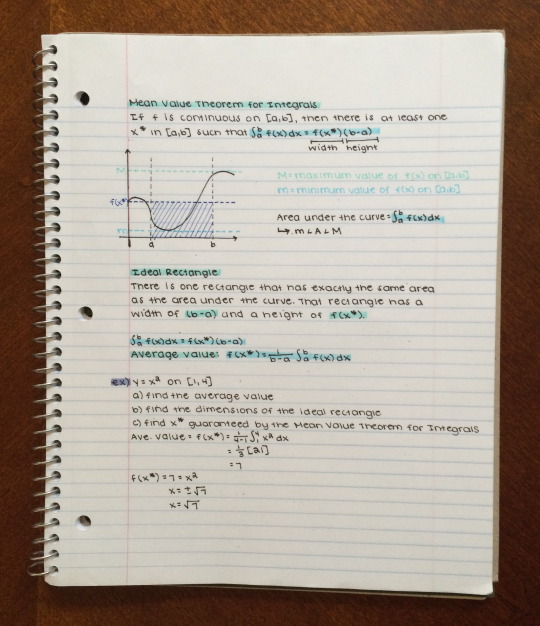 Mean Value Theorem for Integrals
If f is continuous on [a,b], then there is at least one
x* in [a,b] such that ∫ₐᵇ f(x)dx = f(x*)(b-a)
width height
M
f(x*
m
a b
M=maximum value of f(x) on [a,b]
m=minimum value of f(x) on [a,b]
Area under the curve=∫ₐᵇ f(x)dx
↳ m<A<M
Ideal Rectangle
There is one rectangle that has exactly the same area
as the area under the curve. That rectangle has a
width of (b-a) and a height of f(x*).
∫ₐᵇ f(x)dx = f(x*)(b-a)
Average value: f(x*)= 1/b-a ∫ₐᵇ f(x)dx
ex) y=x² on [1,4]
a) find the average value
b) find the dimensions of the ideal rectangle
c) find x* guaranteed by the Mean Value Theorem for Integrals
Ave. value = f(x*)= 1/4-1 ∫₁⁴ x² dx
= 1/3 [21]
=7
f(x*)=7=x²
x=±√7
x=√7